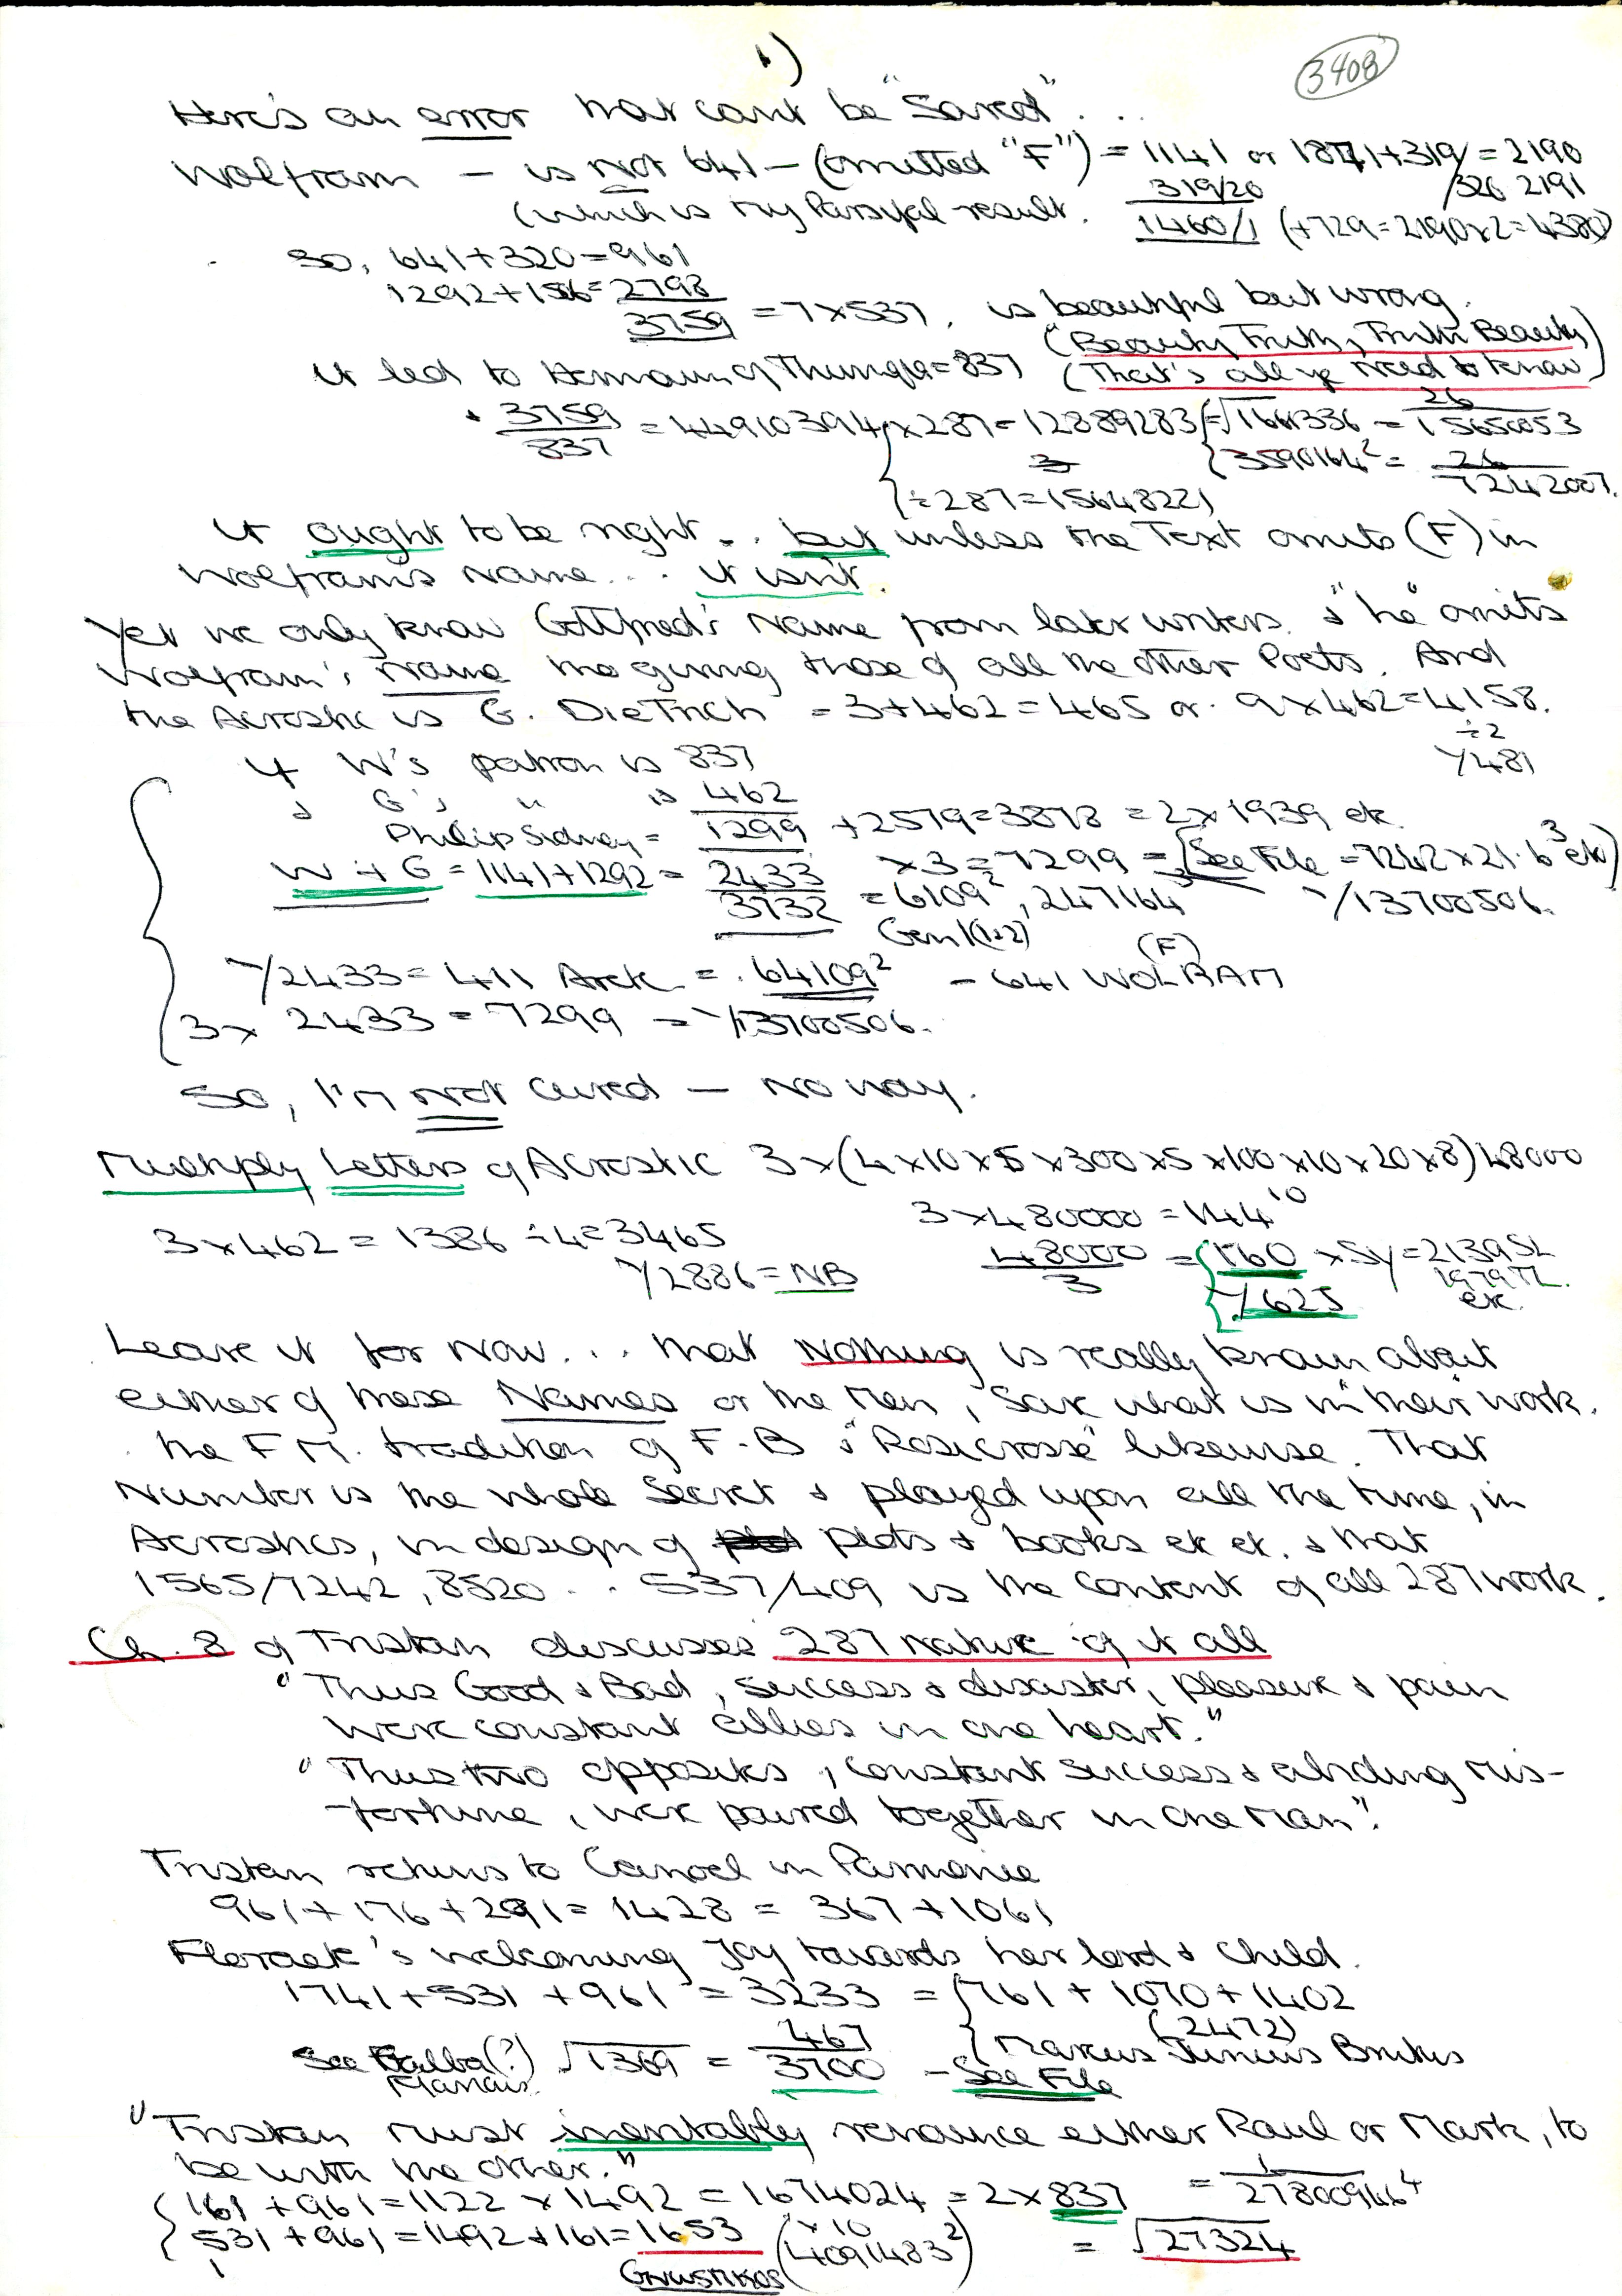 1)
3408
Here's an error that can't be "Saved" . . .
Wolfram — is Not 641 — (omitted "F") = 1141 or 1871+319/ = 2190
319/20 /326 2191
(which is my Parsifal result. 1460/1 (+729=2190x2=4380)
So, 641+320=961
1292+1506=2798
3759 = 7x537, is beautiful but wrong.
(Beauty Truth, Truth Beauty)
it led to Hermann of Thuringia=837 (That's all ye need to know)
3759 / 837 = 44910394 x 287 = 12889283
÷287=15648221
3590164² = 26 / 7242007.
it ought to be right . . but unless the Text omits (F) in
Wolfram's Name . . . it isn't.
Yet we only know Gottfried's Name from later writers. & "he" omits
Wolfram's Name tho giving those of all the other Poets. And
the Acrostic is G. DieTrich = 3+462=465 or 9x462=4158.
÷2
1/481
If W's patron is 837
& G's " is 462
Philip Sidney = 1299 +2579=3878 = 2x1939 etc.
W + G = 1141+1292 = 2433 x3=7299 = [See File = 7242x21.6³ etc)
3732 = 6109², 247164³ 1/13700506.
Gen 1(1+2)
1/2433 = 411 Arek = .64109² - 641 WOL(F)RAM
3x 2433 = 7299 = 1/13700506.
So, I'm Not Cured — No way.
Multiply Letters of Acrostic 3x(4x10x5x300x5x100x10x20x8)48000
3x480000=144¹⁰
3x462=1386 ÷4=3465
1/2886 = NB
48000 / 3 = 160 x Sy = 2139 SL
1979 TL.
1/625 etc.
Leave it for Now . . . that Nothing is really known about
either of these Names or the Men, Save what is in "their" work.
the F M. tradition of F.B & "Rosicrosse" likewise. That
Number is the whole Secret & played upon all the time, in
Acrostics, in design of plots & books etc etc. & that
1565/7242, 8520 . . 537/409 is the Content of all 287 work.
Ch. 8 of Tristan discusses 287 Nature of it all
"Thus Good & Bad, success & disaster, pleasure & pain
were constant allies in one heart."
"Thus two opposites, constant success & abiding mis-
-fortune, were paired together in one Man".
Tristan returns to Canoel in Parmenie
961+176+291=1428 = 367+1061
Floraete's welcoming Joy towards her lord & child.
1741+531+961=3233 = {761+1070+1402
(2472)
{Marcus Junius Brutus
See Galba(?) √1369 = 467 / 3700 - See File
"Tristan must inevitably renounce either Raul or Mark, to
be with the other."
{161+961=1122x1492=1674024=2x837 = 1 / 27800946⁴
{531+961=1492+161=1653 (x10 4091483²) = √27324
GNWSTIKOS